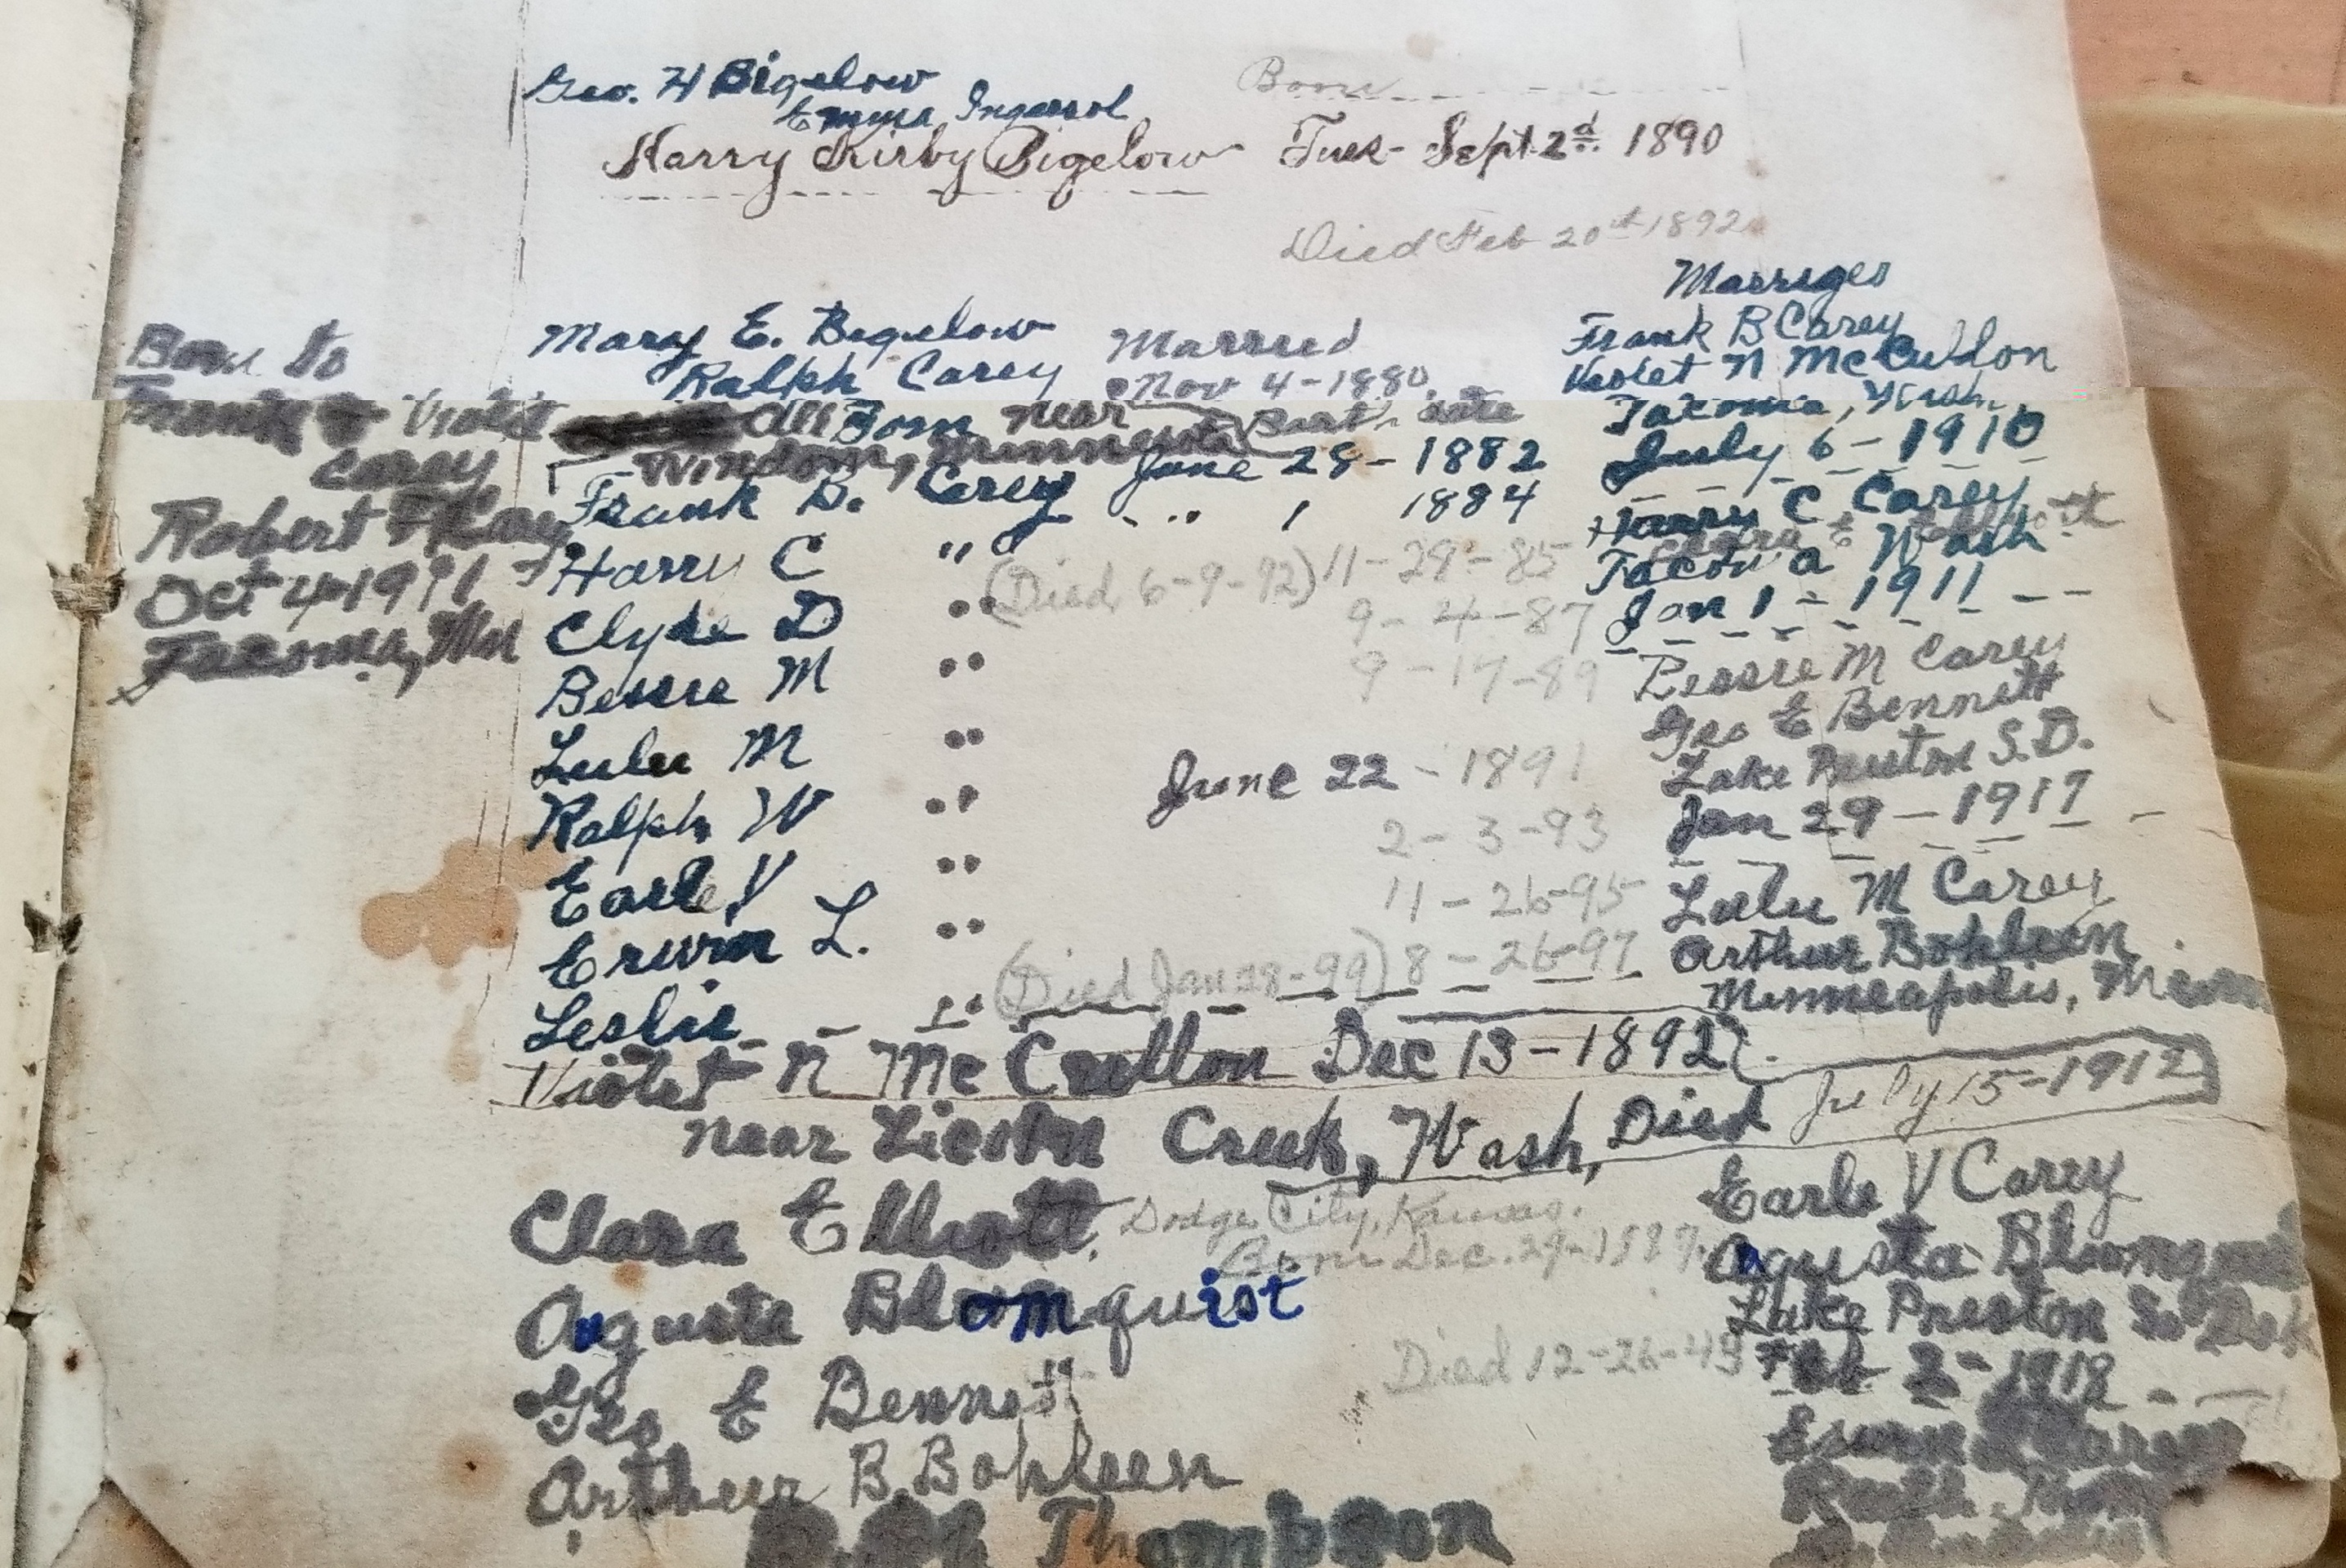 Geo. H Bigelow
Emma Ingersol
Born
Harry Kirby Bigelow Tues- Sept 2d. 1890
Died Feb 20th 1892
Born to
Frank & Violet
Carey
Robert
Oct 4 1911
Tacoma, Wn
Mary E. Bigelow Married
Ralph Carey Nov 4-1880
All Born Near Birth date
Windom, Minnesota
Frank B. Carey June 28-1882
Harry C " 1884
Clyde D " (Died 6-9-92) 11-29-85
Bessie M " 9-4-87
Lulu M " 9-17-89
Ralph W " June 22-1891
Earle V " 2-3-93
Erwin L. " 11-26-95
Leslie " (Died Jan 28-99) 8-26-97
Violet N McCrullon Dec 13-1892
near Creek, Wash, Died July 15-1912
Clara Elliott. Dodge City, Kansas.
Born Dec. 29-
Augusta Blomquist
Geo E Bennett Died 12-26-49
Arthur B. Bohleen
Thompson
Marriges
Frank B Carey
Violet N
Tacoma, Wash,
July 6-1910
Harry C Carey
Tacoma Wash
Jan 1-1911
Bessie M Carey
Geo E Bennett
Lake Preston S.D.
Jan 29-1917
Lulu M Carey
Arthur Bohleen
Minneapolis, Minn
Earle V Carey
Augusta Blomquist
Lake Preston So Dak
Feb 2-1918
Erwin L Carey
Ruth